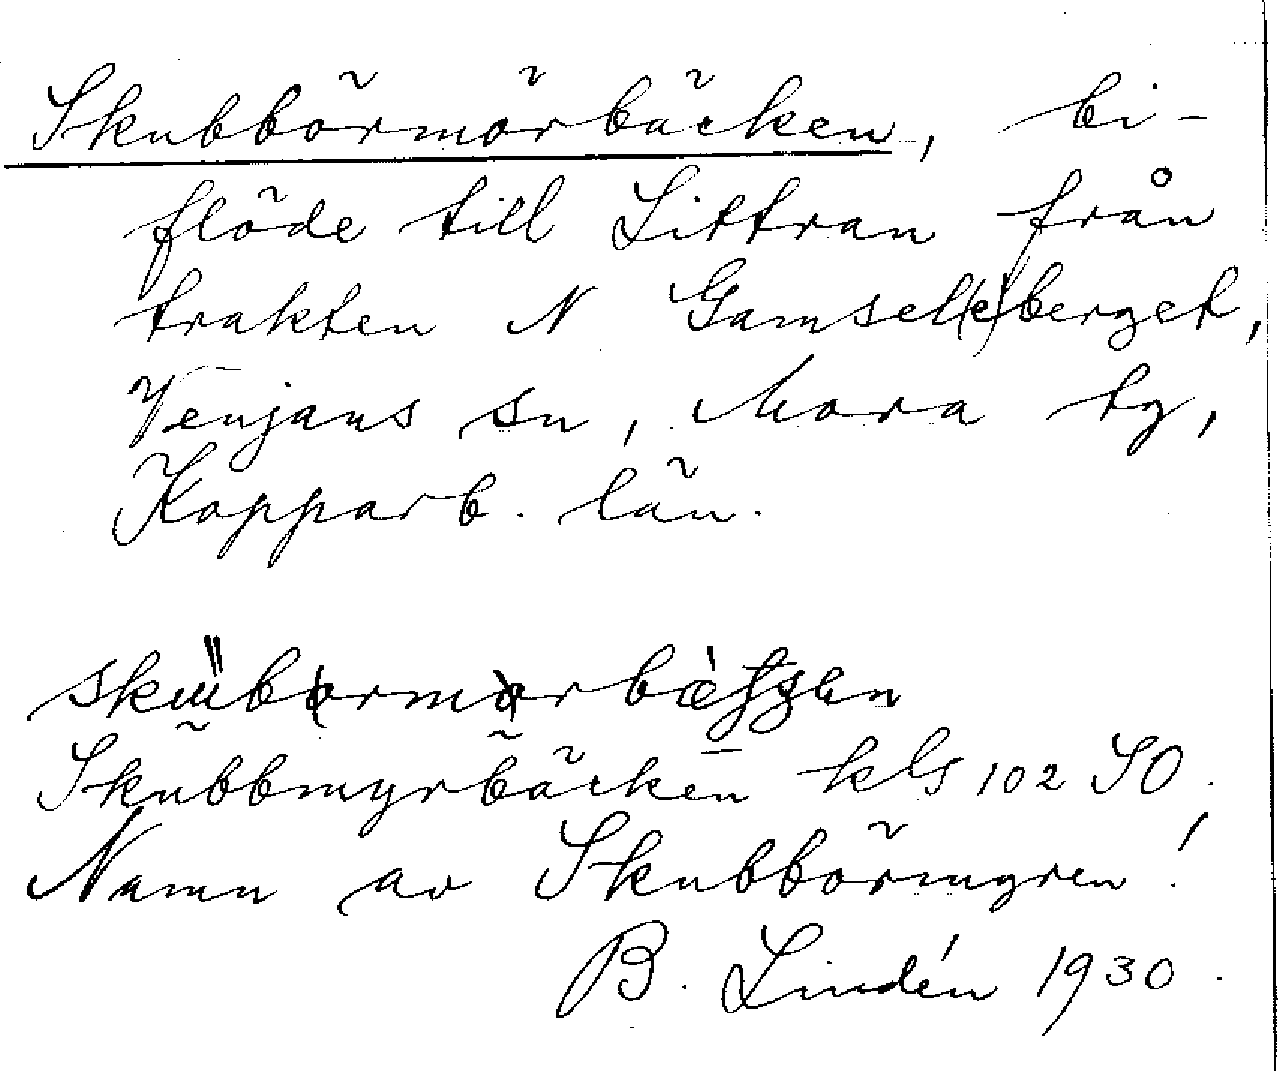 Skubbörmörbäcken, bi-
flöde till Littran från
trakten N Gamsel(e)berget,
Venjans sn, Mora tg,
Kopparb. län.
Skubbmyrbäcken kls 102 SO.
Namn av Skubbörmyren!
B. Lindén 1930.